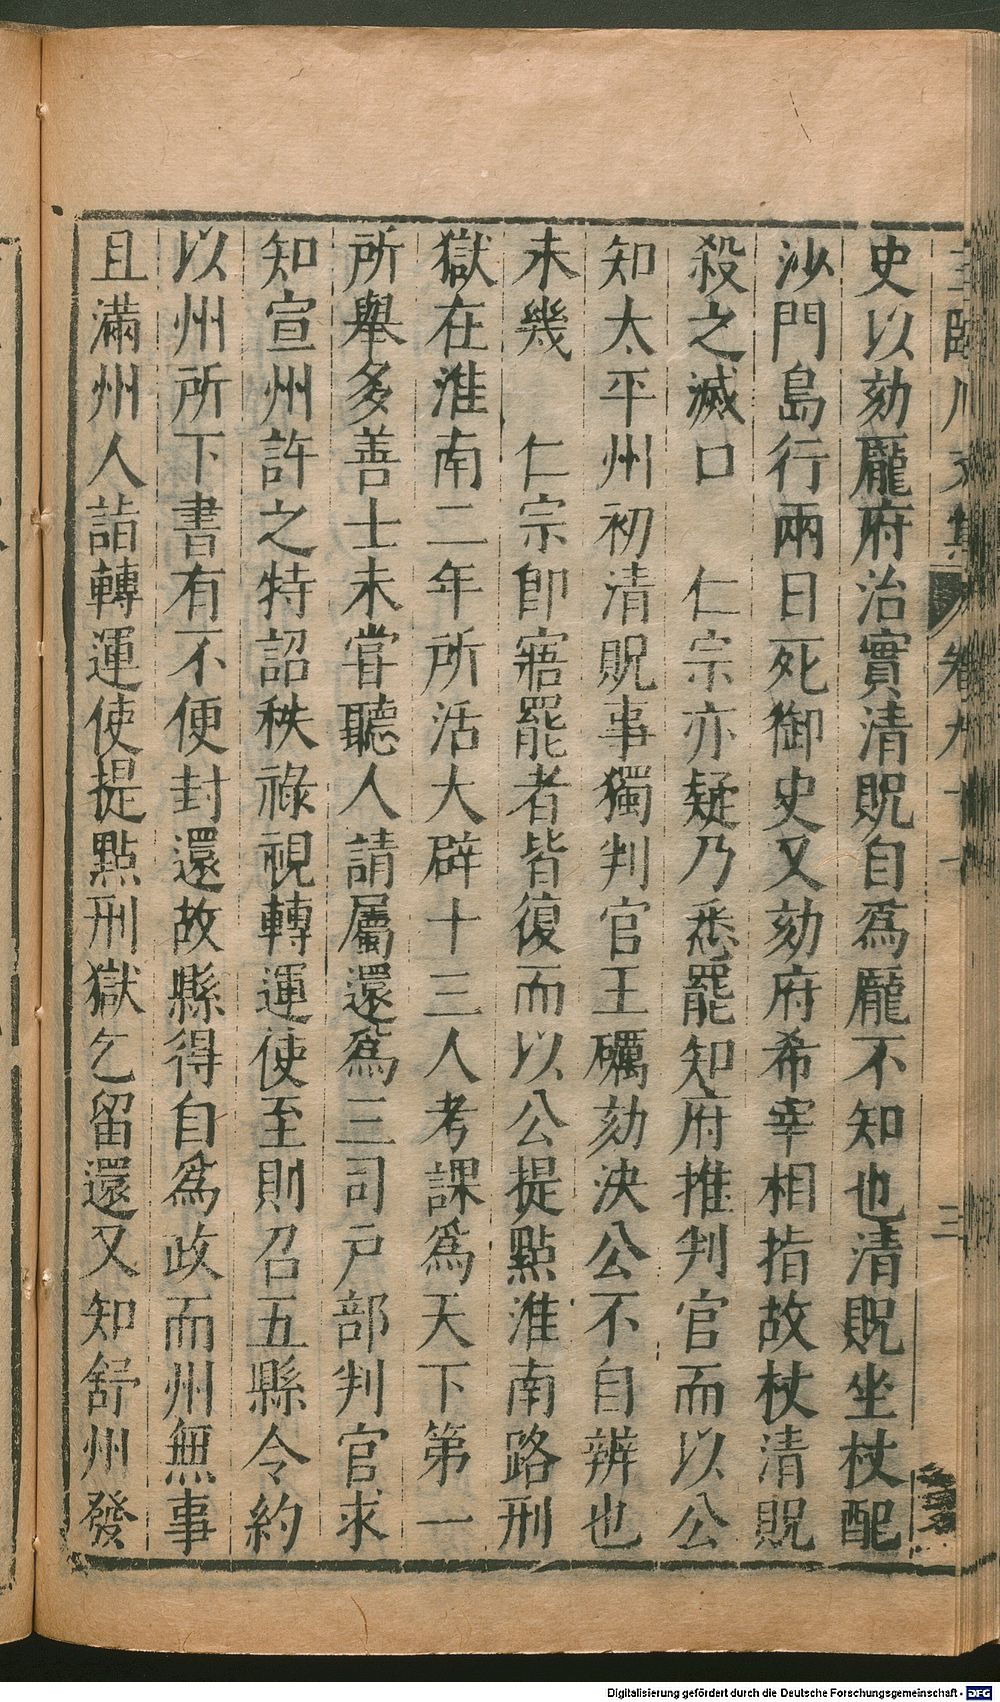 史以劾龐府治實清貺自爲龐不知也清貺坐杖配
沙門島行兩日死御史又劾府希宰相指故杖清貺
殺之滅口　仁宗亦疑乃悉罷知府推判官而以公
知太平州初清貺事獨判官王礪劾決公不自辨也
未幾　仁宗即寤罷者皆復而以公提點淮南路刑
獄在淮南二年所活大辟十三人考課爲天下第一
所舉多善士未嘗聽人請屬還爲三司戶部判官求
知宣州許之特詔秩祿視轉運使至則召五縣令約
以州所下書有不便封還故縣得自爲政而州無事
且滿州人詣轉運使提點刑獄乞留還又知舒州發
三
Digitalisierung gefördert durch die Deutsche Forschungsgemeinschaft - DFG